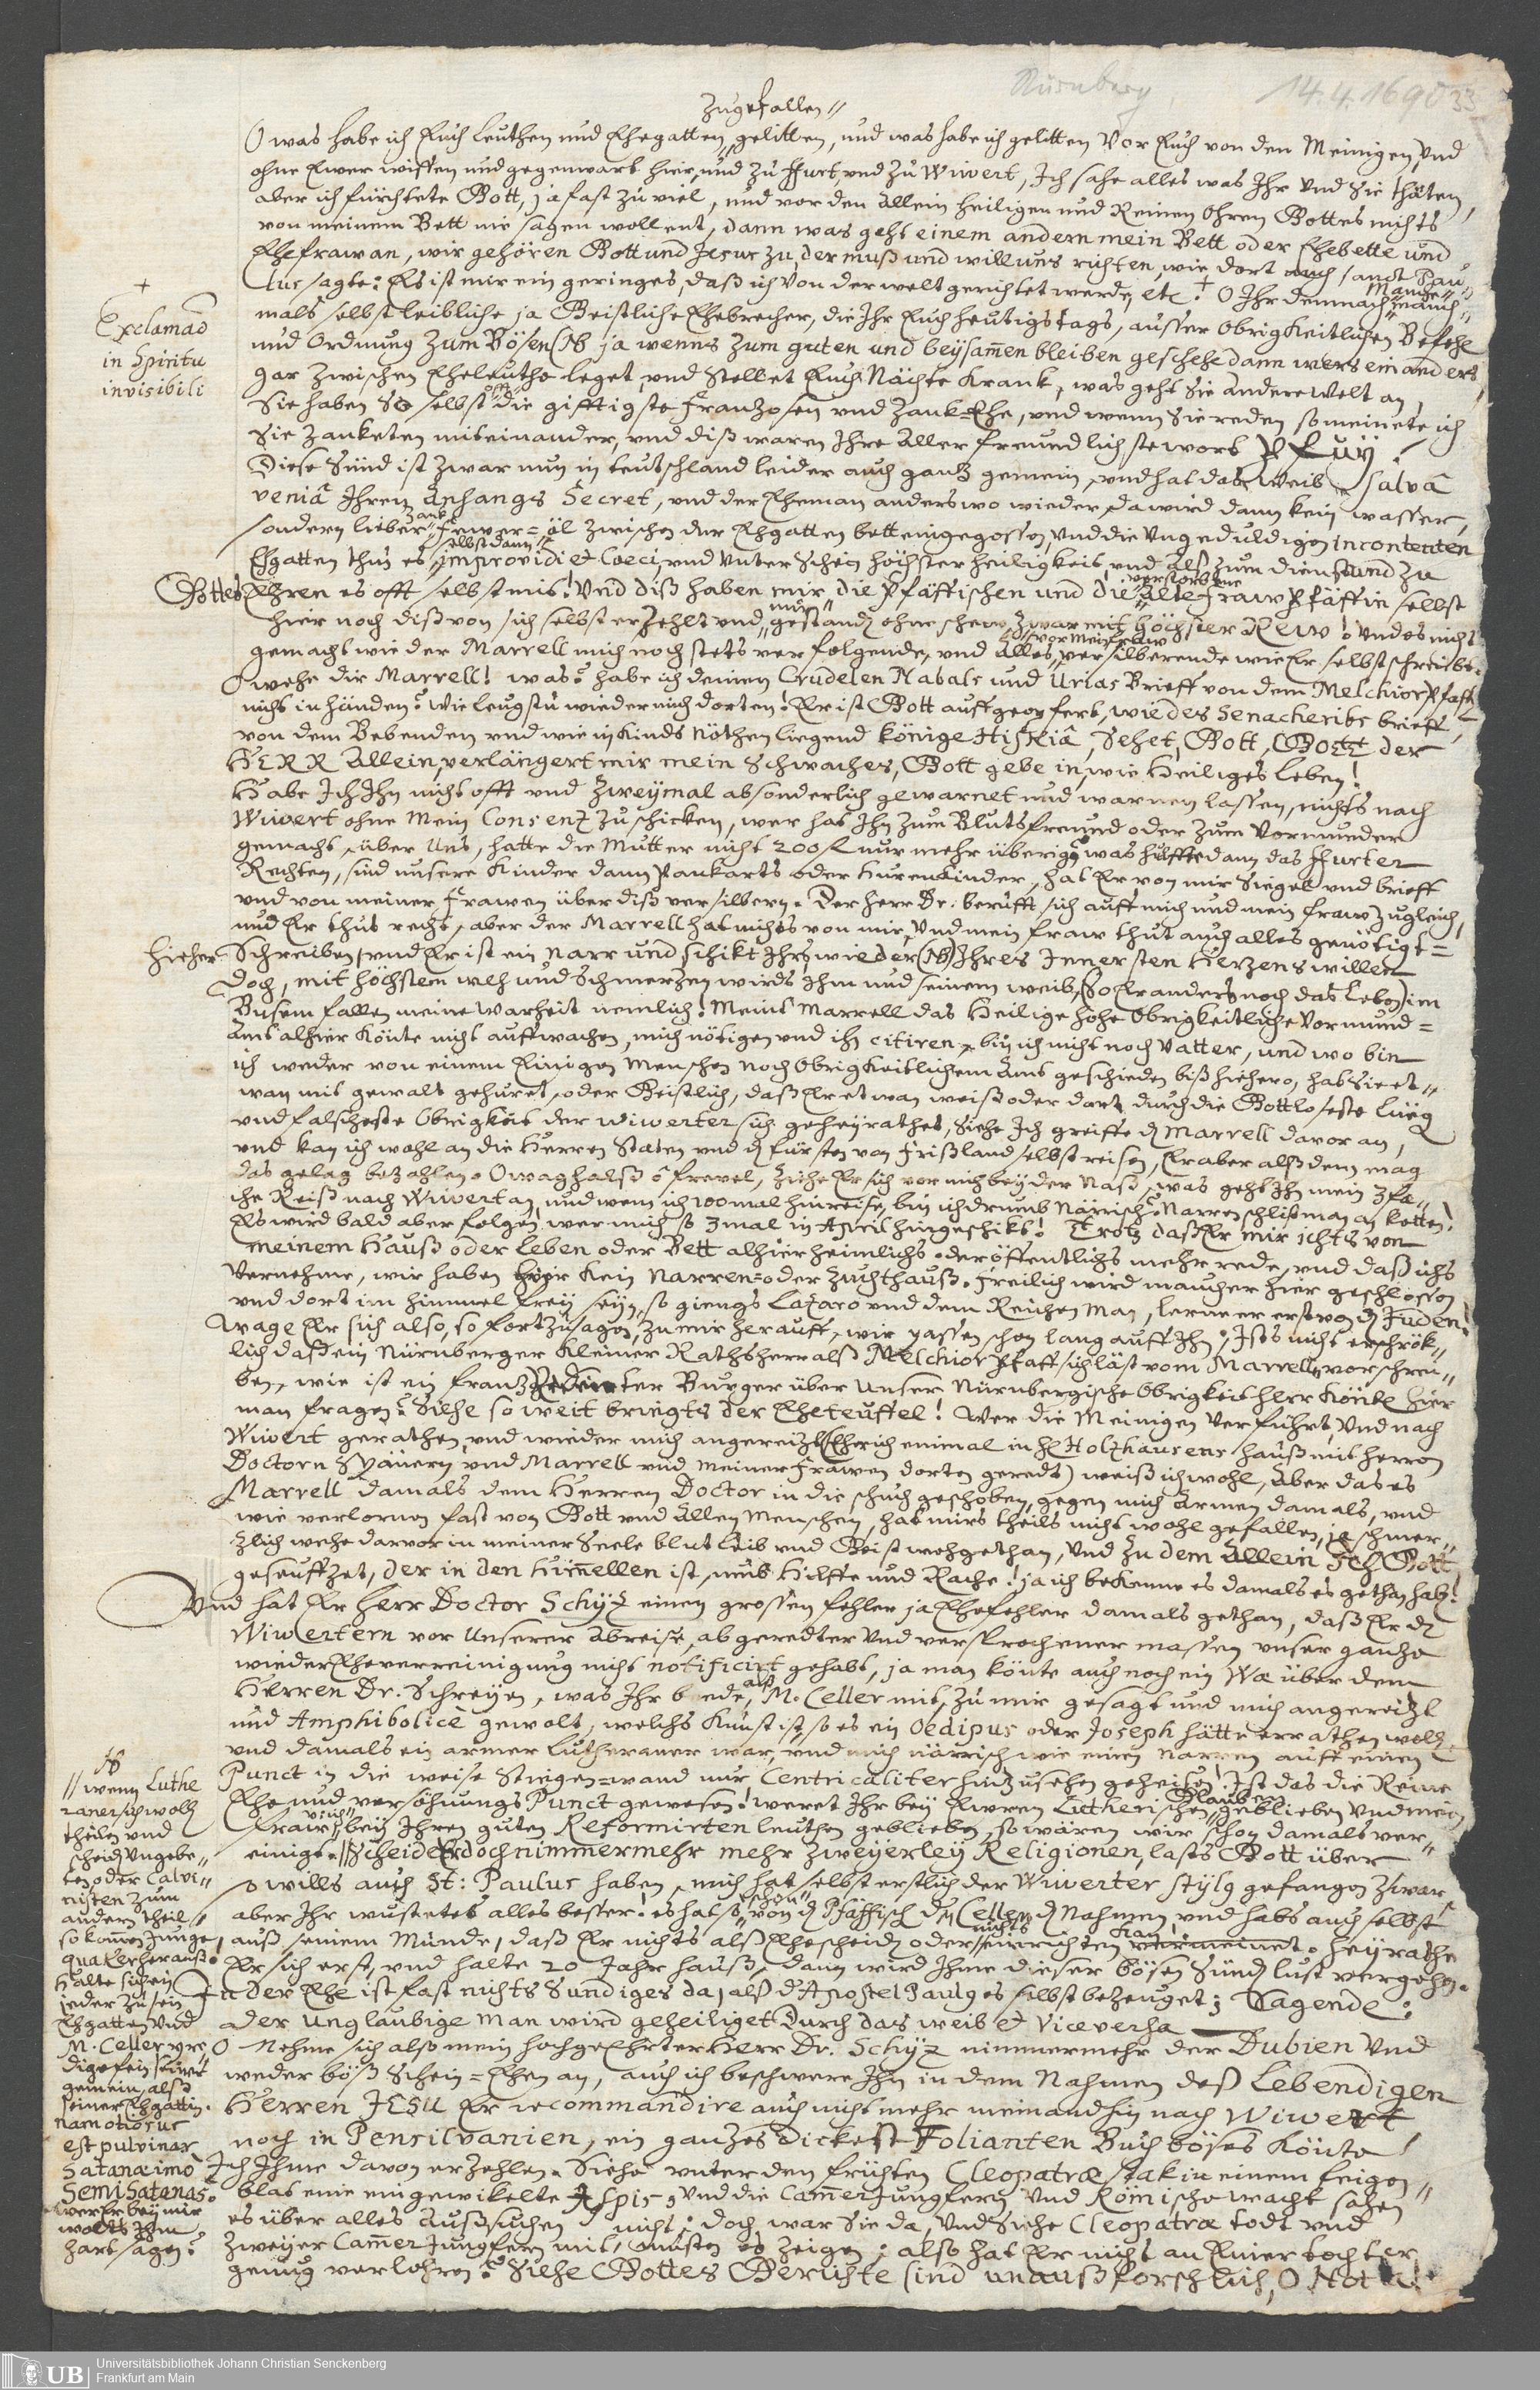 Nürnberg, 14.4.1690 33
zugefallen
O was habe ich Euch Leuthen und Ehegatten, gelitten, und was habe ich gelitten Vor Euch von den Meinigen, Und
ohne Ewer wissen und gegenwart hier, und zu ffurt, und zu Wiwert, Ich sahe alles was Ihr Und Sie thäten,
aber ich fürchtete Gott, ja fast zu viel, und vor den allein heiligen und Reinen Ohren Gottes nichts
von meinem Bett nie sagen wollent, dann was geht einem andern mein Bett oder Ehebette und
Ehefraw an, wir gehören Gott und Jesus zu, der muß und will uns richten, wie dort auch sanct Pau-
lus sagte: Es ist mir ein geringes, daß ich von der welt gerichtet werde, etc. O Ihr demnach manch-
mals selbst leibliche ja Geistliche Ehebrecher, die Ihr Euch heutigs tags, ausser Obrigkeitlichen Befehl
und Ordnung zum Bösen (NB ja wenns zum guten und beysamen bleiben geschehe dann wers ein anders,
gar zwischen Eheleuthe leget, und Stellet Euch Nächte Krank, was geht Sie andere Welt an,
Sie haben selbst offt die gifftigste Franzosen und Zank-Ehe, und wenn Sie reden so meinete ich
Sie zanketen miteinander, und diß waren Ihre Aller freundlichste wort Pfuy!
Diese Sünd ist zwar nun in teutschland leider auch gantz gemein, und hat das Weib salvâ
veniâ Ihren Anhangs Secret, und der Eheman anderswo wieder, da wird dann kein wasser,
sondern lieber Zank Fewer-öl zwischen der Ehgatten bett eingegossen, Und die Ungeduldigen incontenten
Ehgatten thun es selbst dann improvidi et Coeci, und unter Schein höchster heiligkeit, und alß zum dienst und zu
Gottes Ehren es offt selbst mit! Und diß haben mir die Pfäffischen und die verstorbene alte Fraw Pfäffin selbst
hier noch diß von sich selbst erzehlt und mir gestand ohne schew, zwar mit höchster Rew! Und es nicht
gemacht wie der Marrell mich noch stets verfolgende, und alles vor mein Fraw versilberende wie Er selbst schreibt.
O wehe dir Marrell! was? habe ich deinen Crudelen Nabals und Urias Brieff von dem Melchior Pfaff
nicht in händen? wie leugstu wieder mich dorten! Er ist Gott auffgeopfert, wie des Senacheribs brieff
von dem Bebenden und wie in Kinds nöthen liegend Könige Hiskiâ, Sehet, Gott, Gott der
HERR Allein, verlängert mir mein Schwaches, Gott gebe in, wie Heiliges Leben!
Habe Ich Ihn nicht offt und zweymal absonderlich gewarnet und warnen lassen, nichts nach
Wiwert ohne Mein Consenz zu schicken, wer hat Ihn zum Blutsfreund oder zum Vormunder
gemacht, über Uns, hatte die Mutter nicht 200 fl nur mehr überig, was hülffte dann das ffurter
Rechten, sind unsere Kinder dann Pankarts oder Hurenkinder, hat Er von mir Siegel und brieff
und von meiner Frawen über diß versilbern. Der Herr Dr. berufft sich auff mich und mein fraw zugleich,
und Er thut recht, aber der Marrell hat nichts von mir, Und mein fraw thut auch alles genötigt-
hieher Schreiben, und Er ist ein Narr und schikt Ihrs, wieder (NB) Ihres Innersten Herzens willen
doch, mit höchstem weh und Schmerzen wirds Ihm und seinem weib, (so Er anders noch das Leben) im
Busem fallen meine Warheit nemlich! Meint Marrell das Heilige hohe Obrigkeitliche Vormund-
Amt alhier Könte nicht auffwachen, mich nötigen und ihn citiren, bin ich nicht noch Vatter, und wo bin
ich weder von einem Einigen Menschen noch Obrigkeitlichem Amt geschieden biß hiehero, hat Sie et-
wan mit gewalt gehuret, oder Geistlich, daß Er etwan weiß oder dort durch die Gottloseste Lüge
und falscheste Obrigkeit der Wiwerter sich geheyrathet, Siehe Ich greiffe den Marrell davor an,
und kan ich wohl an die Herren Staten und den fürsten von Frießland selbst reisen, Er aber alßdenn mag
das gelag bezahlen. O waghalß ô frevel, ziehe Er sich vor mich bey der Nasen, was geht Ihn mein
che Reiß nach Wiwert an, und wenn ich 100 mal hinreise, bin ich drumb Närrisch? Narren schließt man an Ketten.
Es wird bald aber folgen, wer mich so 3 mal in April hingeschikt! Trotz daß Er mir ichts von
meinem Hauß oder Leben oder Bett alhier heimlichs oder öffentlichs mehr rede, und daß ichs
Vernehme, wir haben hier Kein Narren- oder Zuchthauß. Freilich wird mancher hier geschlossen
und dort im himmel frey seyn, so giengs Lazaro und dem Reichen Man, lerne er erst von den Juden!
Wage Er sich also, so fort zu sagen, zu mir herauff, wir passen schon lang auff Ihn; Ists nicht erschrök-
lich daß ein Nürnberger Kleiner Rathsherr alß Melchior Pfaff sich läst vom Marrell vorschrei-
ben, wie ist ein ffurter Burger über Unser Nürnbergische Obrigkeit Herr Könte hier
man fragen? Siehe so weit bringts der Eheteuffel! Wer die Meinigen Verführt Und nach
Wiwert gerathen, und wieder mich angereizt (Ehe ich einmal in H. Holzhausens hauß mit Herren
Doctorn Spänern und Marrell und meiner Frawen dorten geredt) weiß ich wohl, aber das es
Marrell damals dem Herren Doctor in die schuh geschoben, gegen mich Armen damals, und
wie verlornen fast von Gott und Allen Menschen, hat mirs theils nicht wohl gefallen, ja schmer-
zlich wehe darvor in meiner Seele blut Leib und Geist wehgethan, Und zu dem Allein Gott
geseuffzet, der in den Himellen ist, umb Hilffe und Rache! ja ich bekenne es damals es gethan hab!
Und hat Er Herr Doctor Schyz einen grossen fehler ja Ehefehler damals gethan, daß Er den
Wiwertern vor Unserer Abreise, abgeredter Und versprochener massen unser ganze
wieder Eheverreinigung nicht notificirt gehabt, ja man könte auch noch ein Wæ über dem
Herren Dr. Schreyen, was Ihr beede, alß M. Celler mit, zu mir gesagt und mich angereitzt
und Amphibolicè gewolt, welchs Kunst ist, so es ein Oedipus oder Joseph hätte errathen wollen,
und damals ein armer Lutheraner war, und mich närrisch wie einen Narren auff einen
Punct in die weise Stuegen-wand nur Centricaliter hinzusehen geheisen! Ist das die Reine
Ehe und versöhnungs Punct gewesen! weret Ihr bey Ewren Lutherischen Glauben geblieben Und mein
Fraw bey Ihren guten Reformirten leuthen geblieben, so wären wir schon damals ver-
einigt. Scheidet doch nimmermehr mehr zweyerley Religionen, lasts Gott über
so wills auch St: Paulus haben, mich hat selbst erstlich der Wiwerter stylus gefangen zwar,
aber Ihr wustetes alles besser! es hat so schon von den Pfäffisch den Cellern den Nahmen, und habs auch selbst
auß seinem Munde, daß Er nichts alß Ehescheiden oder nichts einrichten Kan vermeinet. Heyrathe
Er sich erst, und halte 20 Jahr hauß, dann wird Ihme dieser bösen Sünden lust vergehen.
In der Ehe ist fast nichts Sündiges da, alß der Apostel Paulus es selbst bezeuget; Sagende:
Der Unglaubige Man wird geheiliget Durch das weib et Vice versa
O Nehme sich also mein hochgeEhrter Herr Dr. Schyz nimmermehr der Dubien Und
weder böß Schein-Ehen an, auch ich beschwere Ihn in dem Nahmen deß Lebendigen
Herren JESU Er recommandire auch nicht mehr niemand hin nach Wiwert
noch in Pensilvanien, ein ganzes Dickest Folianten Buch böses Könte
Ich Ihme davon erzehlen. Siehe unter den früchten Cleopatræ stak in einem feigen-
blat eine eingewikelte Aspis, Und die Camer Jungfern Und Römische wacht sahen
es über alles Außsuchen nicht; doch war Sie da, Und Siehe Cleopatra todt und
zweyer Camer Jungfern mit, musten es zeigen; also hat Er nicht an Einer tochter
genug verlohren? Siehe Gottes Gerichte sind unaußforschlich, O Nota!
+
Exclamaõ
in Spiritu
invisibili
NB
// wenn Luthe
raner sich wolln
theilen und
scheiden Ungebe-
ten oder Calvi-
nisten zum
andern theil,
so komen Junge
Quaker herauß!
halte sich ein
jeder zu sein
Ehgatten Und
M. Celler pre
dige sein
gemein, alß
seiner Ehgattin.
nam otiosus
est pulvinar
Satanæ imò
Semi Satanas.
wer Er bey mir
wolts Ihm
hart sagen?
UB Universitätsbibliothek Johann Christian Senckenberg
Frankfurt am Main